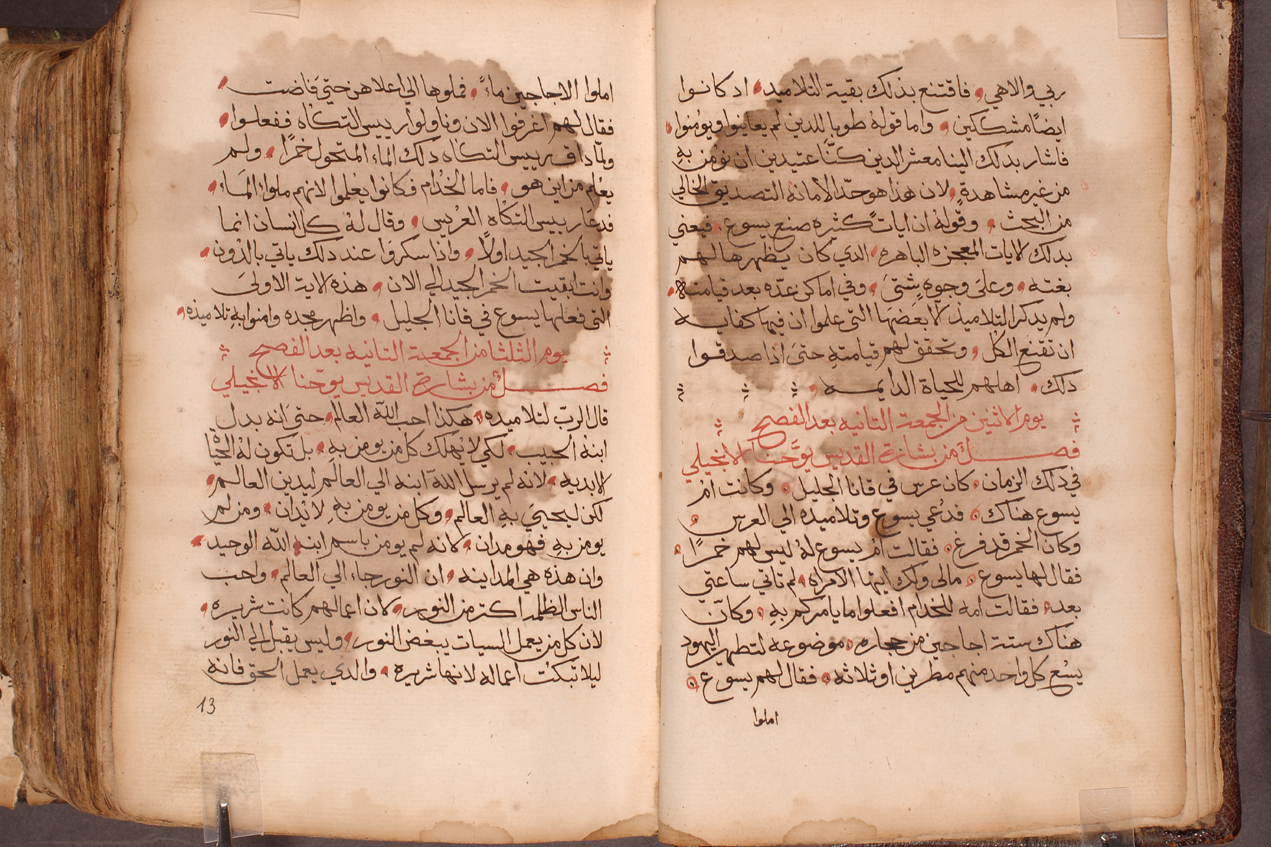 ربي والاهي، فاقتنع بذلك بقية التلاميذ، اد كانوا
ايضًا مشككين، واما قوله طوبا للدين لم يعاينوا ويومنوا
فاشار بدلك الينا معشر الدين كنّا عتيدين ان نومن بهِ
من غير مشاهدةٍ، لان هذا هو حدّ الامانه التصديق الخالي
من البحث، وقوله ان ايات كثيره صنع يسوع، فيعني
بدلك لايات المعجزه الباهره، الدي كان يظهرها لهم
بغته، وعلى وجوهٍ شتى، وفي اماكن عدّه بعد قيامته
ولم يدكر التلاميذ لا بعضها التى علموا ان فيها كفايه
ان تقنع الكل، وتحقق لهم قيامته حتى اذا صدقوا
دلك، اهلهم للحياة الدايمه،
يوم الاثنين من الجمعة التانيه بعد الفصح
فصل من بشارة القديس يوحنا الانجيلي
في دلك الزمان، كان عرس في قانا الجليل، وكانت ام
يسوع هناك، فدعي يسوع وتلاميده الي العرس
وكان الخمر قد فرغ، فقالت ام يسوع له ليس لهم خمرًا
فقال لها يسوع، مالي ولك ايتها الامراه، لم تاتي ساعتي
بعد، فقالت امه للخدام افعلوا ما يامركم بهِ، وكان
هناك ستة اجاجين من حجاره، موضوعه لتطهير اليهود
يسع كل واحد منهم مطرين او ثلاثه، فقال لهم يسوع
املوا
املوا الاجاجين ماءً، فملوها الي اعلاهن حتى فاضت
فقال لهم اغرفوا الان وناولوا رييس التكاه ففعلوا،
ولما داق رييس التكاه دلك الماء المتحول خمرًا، ولم
يعلم من اين هو، فاما الخدام فكانوا يعلموا لانهم ملووا الماء،
فدعا رييس التكاه العريس، وقال له كل انسان انما
ياتي بالخمر الجيد اولًا، واذا سكروا عند دلك ياتي بالدون،
وانت ابقيت الخمر الجيد الي الان، هذه لاية الاولى
التى فعلها يسوع في قانا الجليل، واظهر مجده وامنوا بهِ تلاميذه،
يوم الثلثا من الجمعة التانيه بعد الفصح
فصل من بشارة القديس يوحنا الانجيلي
قال الرب لتلاميذه، هكذا احب اللّه العالم، حتى انه بدل
ابنه الحبيب، لكي لا يهلك كل من يومن بهِ، بل تكون له الحياة
الابديه، لانه لم يرسل اللّه ابنه الي العالم ليدين العالم،
لكن ليحيي بهِ العالم، وكل من يومن بهِ لا يدان، ومن لم
يومن بهِ فهو مدان، لانه لم يومن باسم ابن اللّه الوحيد،
وان هذه هي المداينه، ان النور جاء الي العالم، واحب
الناس الظلمه اكتر من النور، لان اعمالهم كانت شريره،
لان كل من يعمل السيات يبغض النور، وليس يقبل الي النور
ليلا تبكت اعماله لانها شريره، والدي يعمل الحق فانه
13